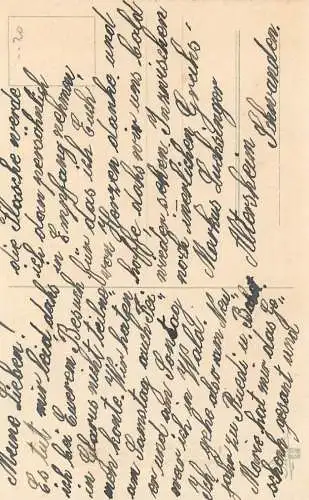 Meine Lieben!
Es tut mir leid dass
ich bei Eurem Besuch
in Glarus nicht teilneh-
men konte. Wir hatten
am Samstag auch Be-
such und als Sontag
war ich in Wald.
Ich gehe aber an Neu-
jahr zu Ruedi u.
Marie hat mir das Ge-
schenk gesant und
die Sache werde
ich dan persönlich
in Empfang nehmen,
für das ist Euch
von Herzen danke und
hoffe dass wir uns bald
wieder sehen. Inzwischen
noch innerlichen Gruss
Markus Luchsinger
Altersheim Schwanden.